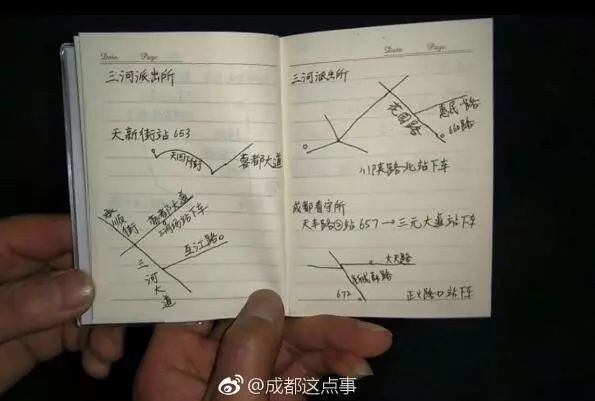 Date Page
三河派出所
天新街站 653
蜀都大道
三河场站下车
互江路
三河大道
Date Page
三河派出所
花园路
惠民路
660路
川陕路北站下车
成都看守所
657→三元大道站下车
大天路
672
正义路口站下车
@成都这点事